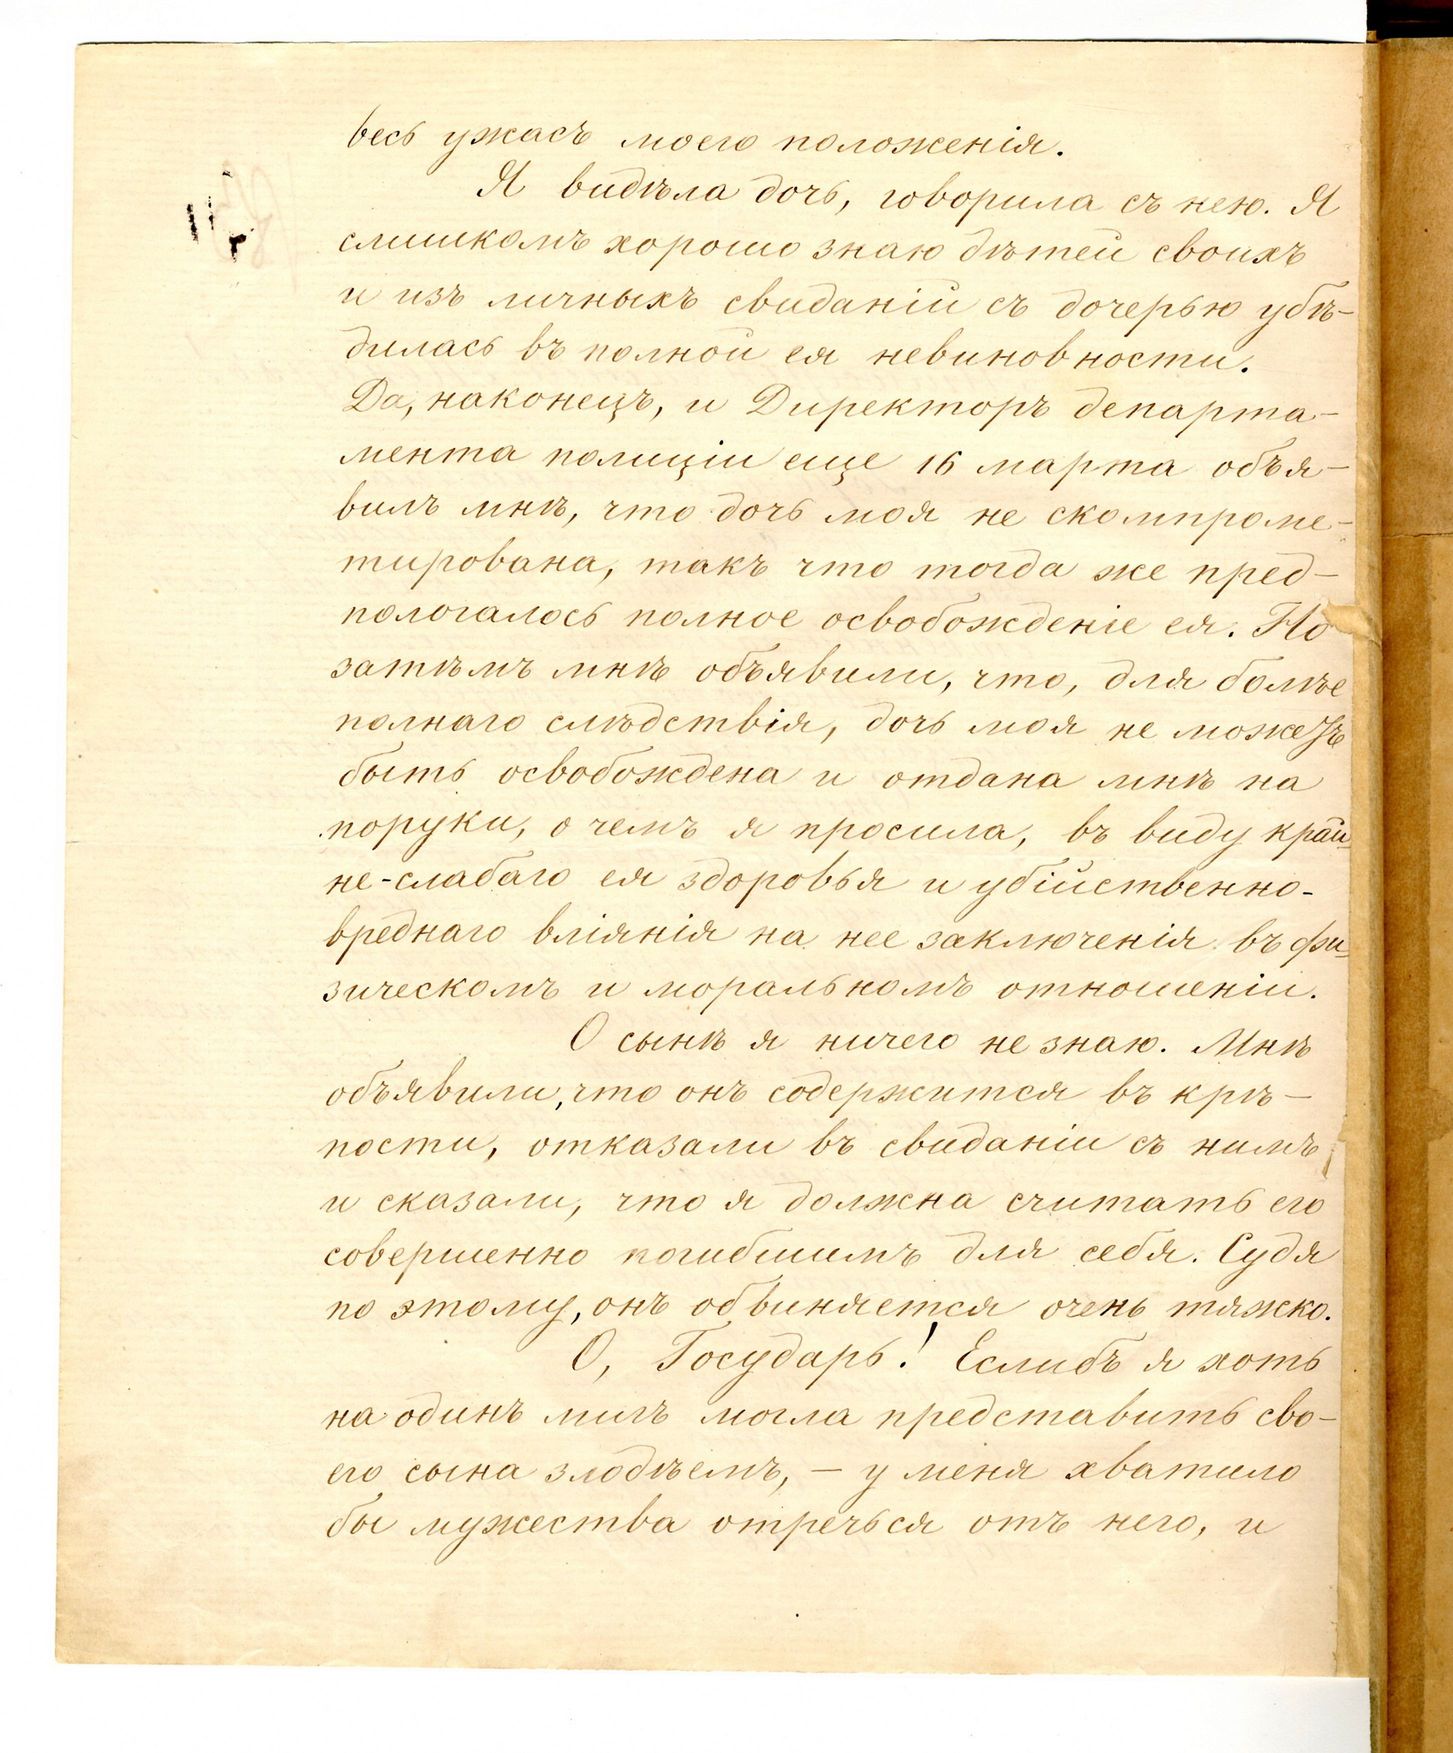 весь ужасъ моего положенія.
Я видѣла дочь, говорила съ нею. Я
слишкомъ хорошо знаю дѣтей своихъ
и изъ личныхъ свиданій съ дочерью убѣ-
дилась въ полной ея невиновности.
Да, наконецъ, и Директоръ департа-
мента полиціи еще 16 марта объя-
вилъ мнѣ, что дочь моя не скомпроме-
тирована, такъ что тогда же пред-
пологалось полное освобожденіе ея. Но
затѣмъ мнѣ объявили, что, для болѣе
полнаго слѣдствія, дочь моя не можетъ
быть освобождена и отдана мнѣ на
поруки, о чемъ я просила, въ виду край-
не-слабаго ея здоровья и убійственно-
вреднаго вліянія на нее заключенія въ фи-
зическомъ и моральномъ отношеніи.
О сынѣ я ничего не знаю. Мнѣ
объявили, что онъ содержится въ крѣ-
пости, отказали въ свиданіи съ нимъ
и сказали, что я должна считать его
совершенно погибшимъ для себя. Судя
по этому, онъ обвиняется очень тяжко.
О, Государь! Еслибъ я хоть
на одинъ мигъ могла представить сво-
его сына злодѣемъ, — у меня хватило
бы мужества отречься отъ него, и